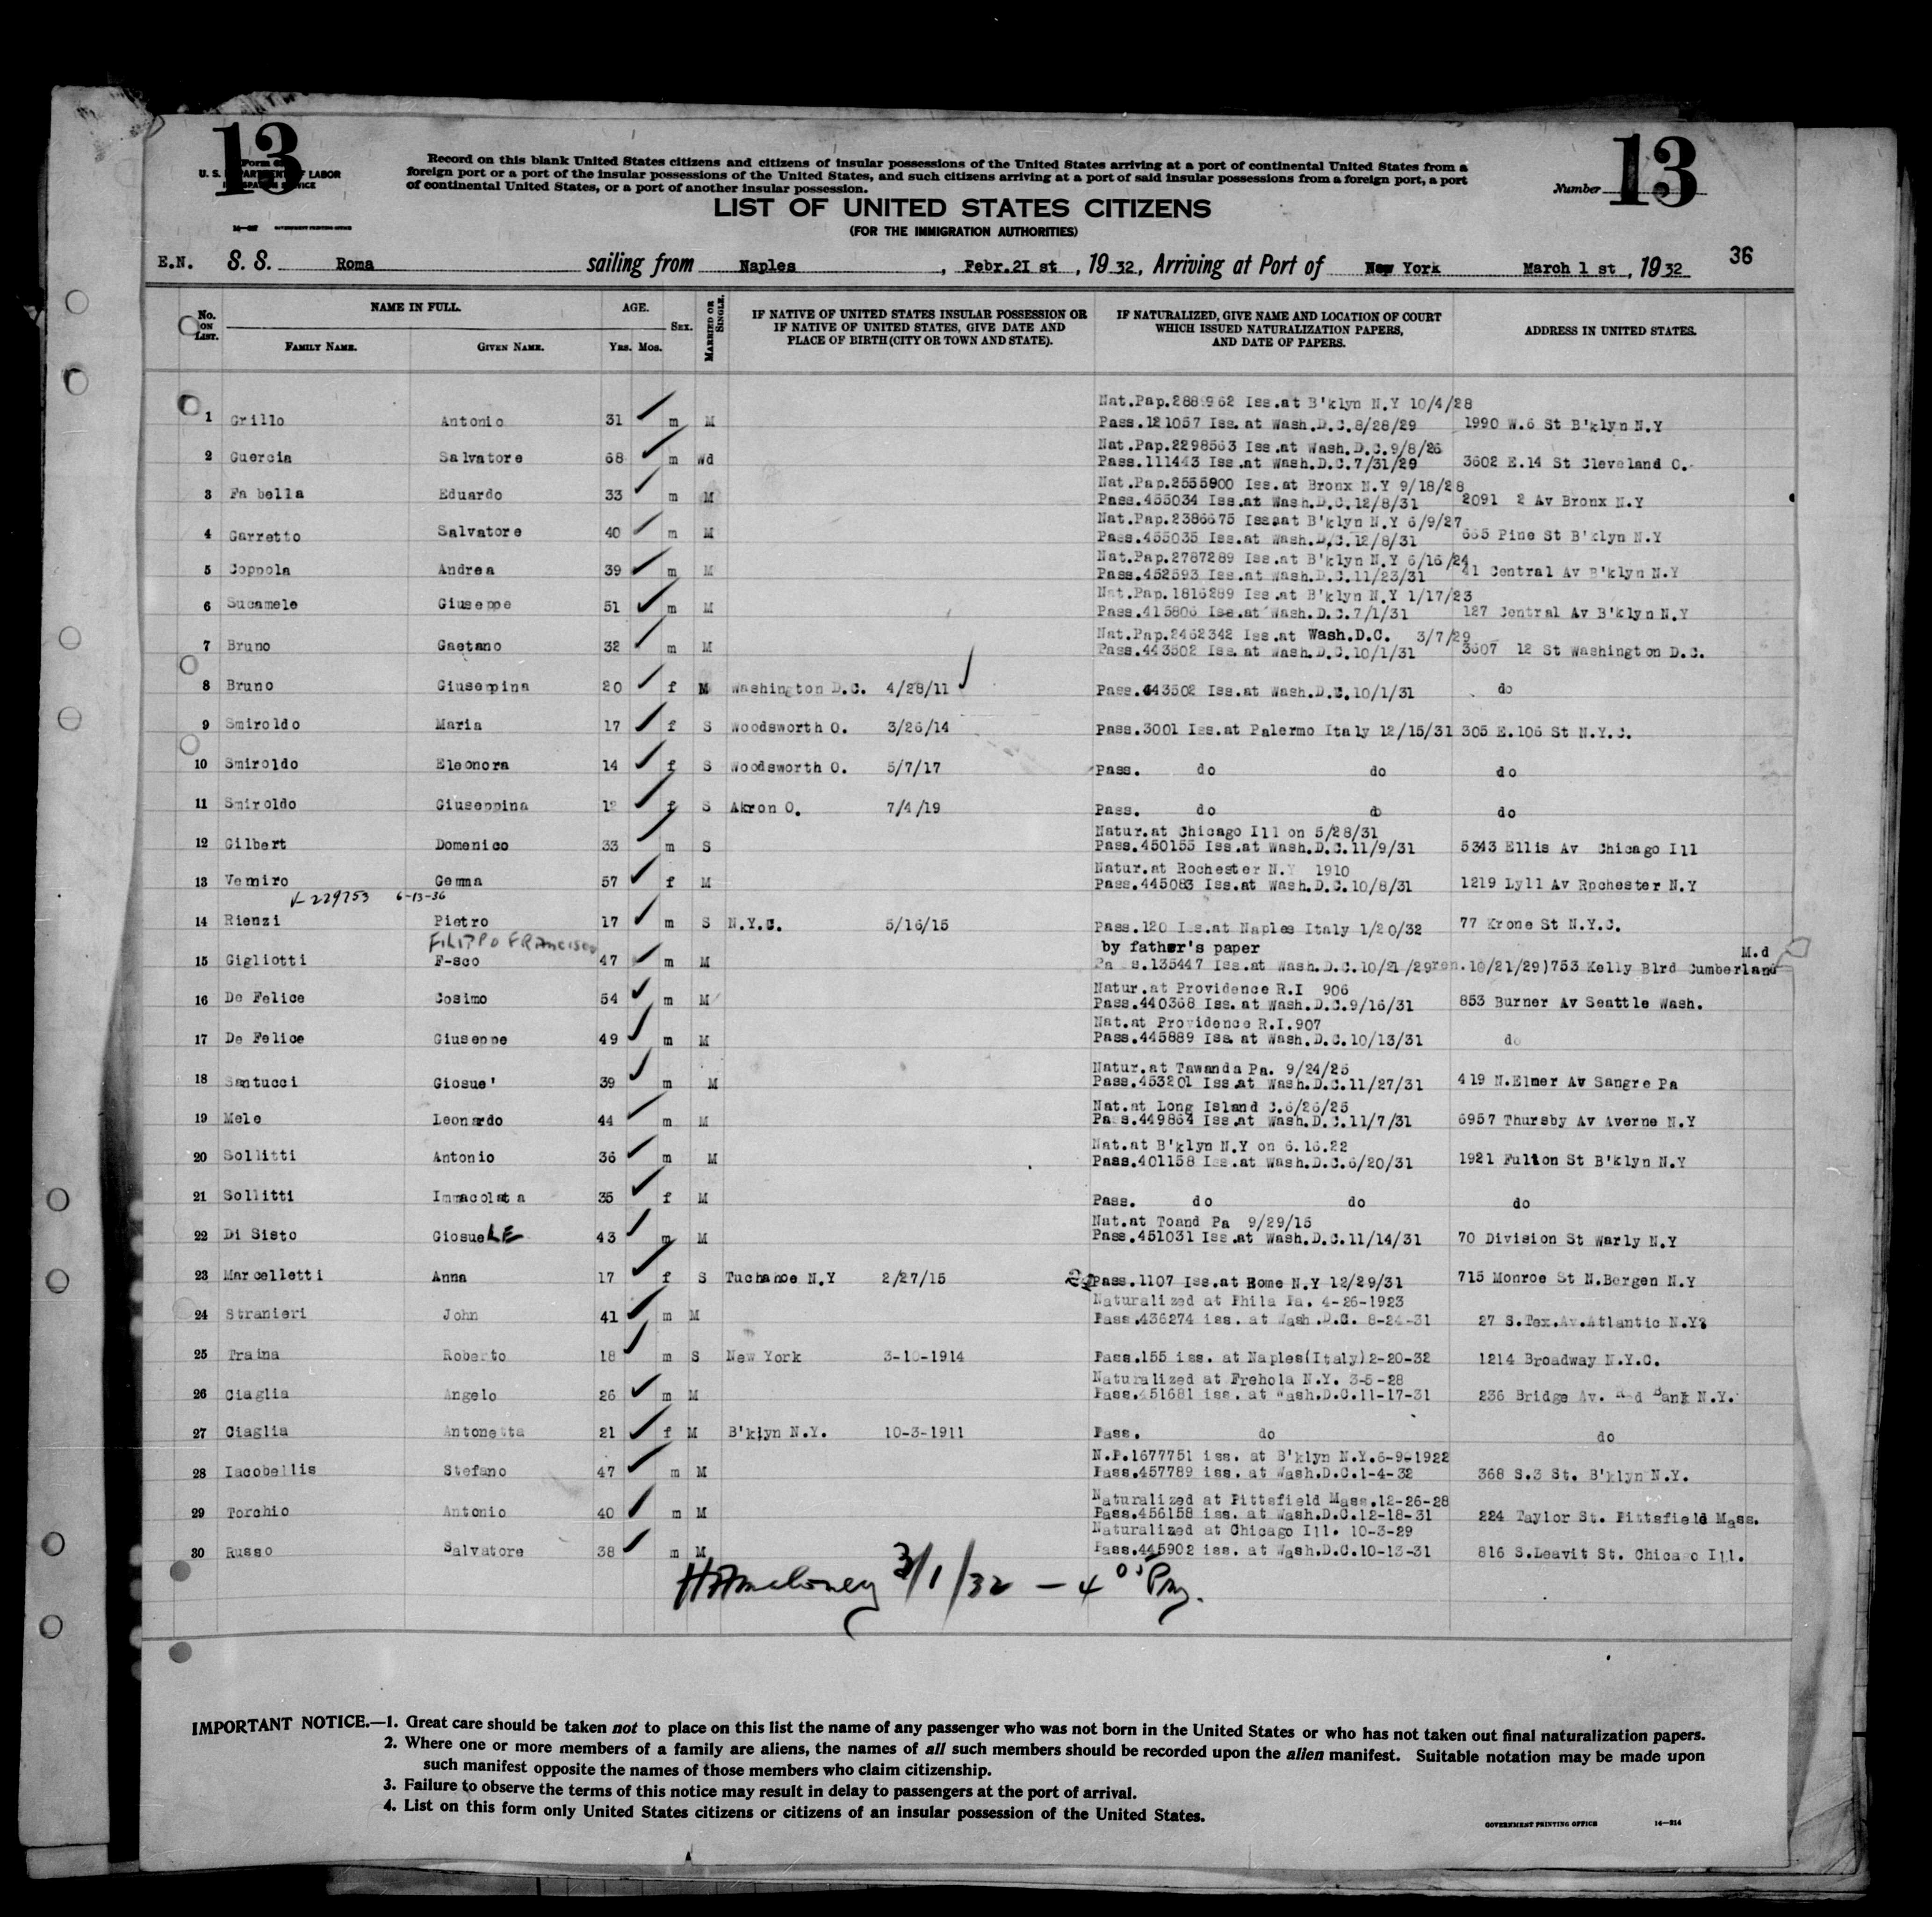 13
13
U. S. DEPARTMENT OF LABOR
Record on this blank United States citizens and citizens of insular possessions of the United States arriving at a port of continental United States from a
foreign port or a port of the insular possessions of the United States, and such citizens arriving at a port of said insular possessions from a foreign port, a port
of continental United States, or a port of another insular possession.
Number
LIST OF UNITED STATES CITIZENS
(FOR THE IMMIGRATION AUTHORITIES)
36
E.N. S. S. Roma sailing from Naples, Febr.2I st, 1932, Arriving at Port of New York March 1 st, 1932
No. ON LIST. NAME IN FULL. FAMILY NAME. GIVEN NAME. AGE. Yrs. Mos. SEX. MARRIED OR SINGLE. IF NATIVE OF UNITED STATES INSULAR POSSESSION OR IF NATIVE OF UNITED STATES, GIVE DATE AND PLACE OF BIRTH (CITY OR TOWN AND STATE). IF NATURALIZED, GIVE NAME AND LOCATION OF COURT WHICH ISSUED NATURALIZATION PAPERS, AND DATE OF PAPERS. ADDRESS IN UNITED STATES.
Nat.Pap. Iss.at B'klyn N.Y 10/4/28
1 Grillo Antonio 31 m M Pass.121057 Iss.at Wash.D.C.8/28/29 1990 W.6 St B'klyn N.Y
Nat.Pap.2298563 Iss.at Wash.D.C.9/8/26
2 Guercia Salvatore 68 m Wd Pass.111443 Iss.at Wash.D.C.7/31/29 3602 E.14 St Cleveland O.
Nat.Pap.2555900 Iss.at Bronx N.Y 9/18/28
3 Fa bella Eduardo 33 m M Pass.455034 Iss.at Wash.D.C.12/8/31 2091 2 Av Bronx N.Y
Nat.Pap.2386675 Iss.at B'klyn N.Y 6/9/27
4 Garretto Salvatore 40 m M Pass.455035 Iss.at Wash.D.C.12/8/31 Pine St B'klyn N.Y
Nat.Pap.2787289 Iss.at B'klyn N.Y 6/16/24
5 Coppola Andrea 39 m M Pass.452593 Iss.at Wash.D.C.11/23/31 41 Central Av B'klyn N.Y
Nat.Pap.1816289 Iss.at B'klyn N.Y 1/17/23
6 Sucamele Giuseppe 51 m M Pass.415806 Iss.at Wash.D.C.7/1/31 127 Central Av B'klyn N.Y
Nat.Pap.2462342 Iss.at Wash.D.C. 3/7/29
7 Bruno Gaetano 32 m M Pass.443502 Iss.at Wash.D.C.10/1/31 3607 12 St Washington D.C.
8 Bruno Giuseppina 20 f M Washington D.C. 4/28/11 Pass.443502 Iss.at Wash.D.C.10/1/31 do
9 Smiroldo Maria 17 f S Woodsworth O. 3/26/14 Pass.3001 Iss.at Palermo Italy 12/15/31 305 E.106 St N.Y.C.
10 Smiroldo Eleonora 14 f S Woodsworth O. 5/7/17 Pass. do do do
11 Smiroldo Giuseppina 12 f S Akron O. 7/4/19 Pass. do do do
Natur.at Chicago Ill on 5/28/31
12 Gilbert Domenico 33 m S Pass.450155 Iss.at Wash.D.C.11/9/31 5343 Ellis Av Chicago Ill
Natur.at Rochester N.Y 1910
13 Vemiro Gemma 57 f M Pass.445083 Iss.at Wash.D.C.10/8/31 1219 Lyll Av Rochester N.Y
229753 6-13-36
14 Rienzi Pietro 17 m S N.Y.C. 5/16/15 Pass.120 Iss.at Naples Italy 1/20/32 77 Krone St N.Y.C.
FILIPPO FRANCISCO by father's paper M.d
15 Gigliotti F-sco 47 m M Pass.135447 Iss.at Wash.D.C.10/21/29ren.10/21/29)753 Kelly Blrd Cumberland
Natur.at Providence R.I 906
16 De Felice Cosimo 54 m M Pass.440368 Iss.at Wash.D.C.9/16/31 853 Burner Av Seattle Wash.
Nat.at Providence R.I.907
17 De Felice Giuseppe 49 m M Pass.445889 Iss.at Wash.D.C.10/13/31 do
Natur.at Tawanda Pa. 9/24/25
18 Santucci Giosue' 39 m M Pass.453201 Iss.at Wash.D.C.11/27/31 419 N.Elmer Av Sangre Pa
Nat.at Long Island C.6/26/25
19 Mele Leonardo 44 m M Pass.449864 Iss.at Wash.D.C.11/7/31 6957 Thursby Av Averne N.Y
Nat.at B'klyn N.Y on 6.16.22
20 Sollitti Antonio 36 m M Pass.401158 Iss.at Wash.D.C.6/20/31 1921 Fulton St B'klyn N.Y
21 Sollitti Immacolata 35 f M Pass. do do do
Nat.at Toand Pa 9/29/15
22 Di Sisto GiosueLE 43 m M Pass.451031 Iss.at Wash.D.C.11/14/31 70 Division St Warly N.Y
23 Marcelletti Anna 17 f S Tuchahoe N.Y 2/27/15 Pass.1107 Iss.at Rome N.Y 12/29/31 715 Monroe St N.Bergen N.Y
Naturalized at Phila Pa. 4-26-1923
24 Stranieri John 41 m M Pass.436274 iss. at Wash.D.C. 8-24-31 27 S.Tex.Av.Atlantic N.Y.
25 Traina Roberto 18 m S New York 3-10-1914 Pass.155 iss. at Naples(Italy)2-20-32 1214 Broadway N.Y.C.
Naturalized at Frehola N.Y. 3-5-28
26 Ciaglia Angelo 26 m M Pass.451681 iss. at Wash.D.C.11-17-31 236 Bridge Av. Red Bank N.Y.
27 Ciaglia Antonetta 21 f M B'klyn N.Y. 10-3-1911 Pass. do do
N.P.1677751 iss. at B'klyn N.Y.6-9-1922
28 Iacobellis Stefano 47 m M Pass.457789 iss. at Wash.D.C.1-4-32 368 S.3 St. B'klyn N.Y.
Naturalized at Pittsfield Mass.12-26-28
29 Torchio Antonio 40 m M Pass.456158 iss. at Wash.D.C.12-18-31 224 Taylor St. Pittsfield Mass.
Naturalized at Chicago Ill. 10-3-29
30 Russo Salvatore 38 m M Pass.445902 iss. at Wash.D.C.10-13-31 816 S.Leavit St. Chicago Ill.
3/1/32 — 4 05 Pm.
IMPORTANT NOTICE.—1. Great care should be taken not to place on this list the name of any passenger who was not born in the United States or who has not taken out final naturalization papers.
2. Where one or more members of a family are aliens, the names of all such members should be recorded upon the alien manifest. Suitable notation may be made upon
such manifest opposite the names of those members who claim citizenship.
3. Failure to observe the terms of this notice may result in delay to passengers at the port of arrival.
4. List on this form only United States citizens or citizens of an insular possession of the United States.
GOVERNMENT PRINTING OFFICE 14—214